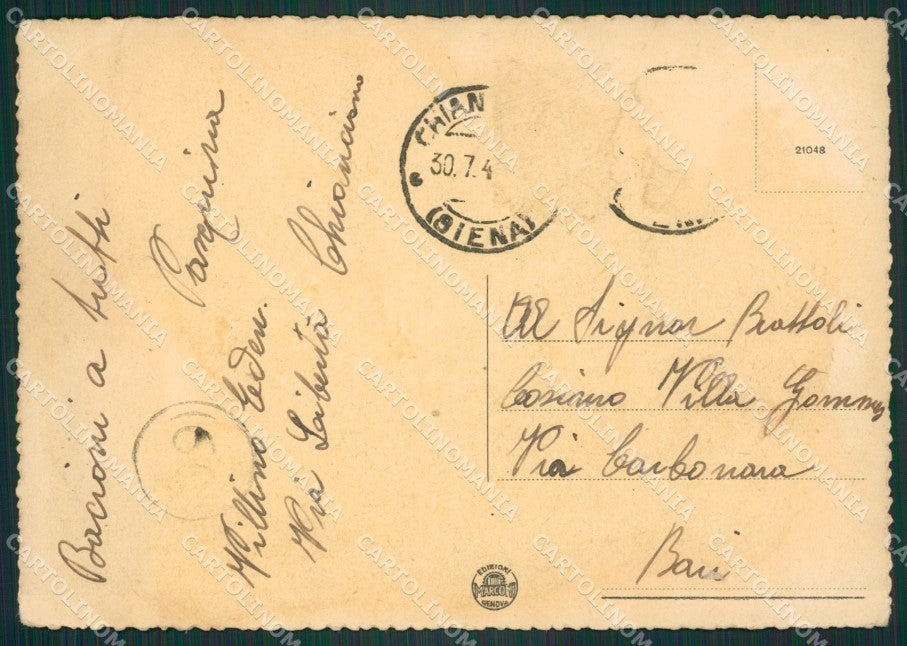 Bacioni a tutti
Pasquina
Villino Eden.
Via Libertà Chianciano
CHIAN
30.7.4
(SIENA)
21048
Al Signor Brattoli
Cosimo Villa
Via Carbonara
Bari
EDIZIONI
MARCONI
GENOVA
CARTOLINOMANIA